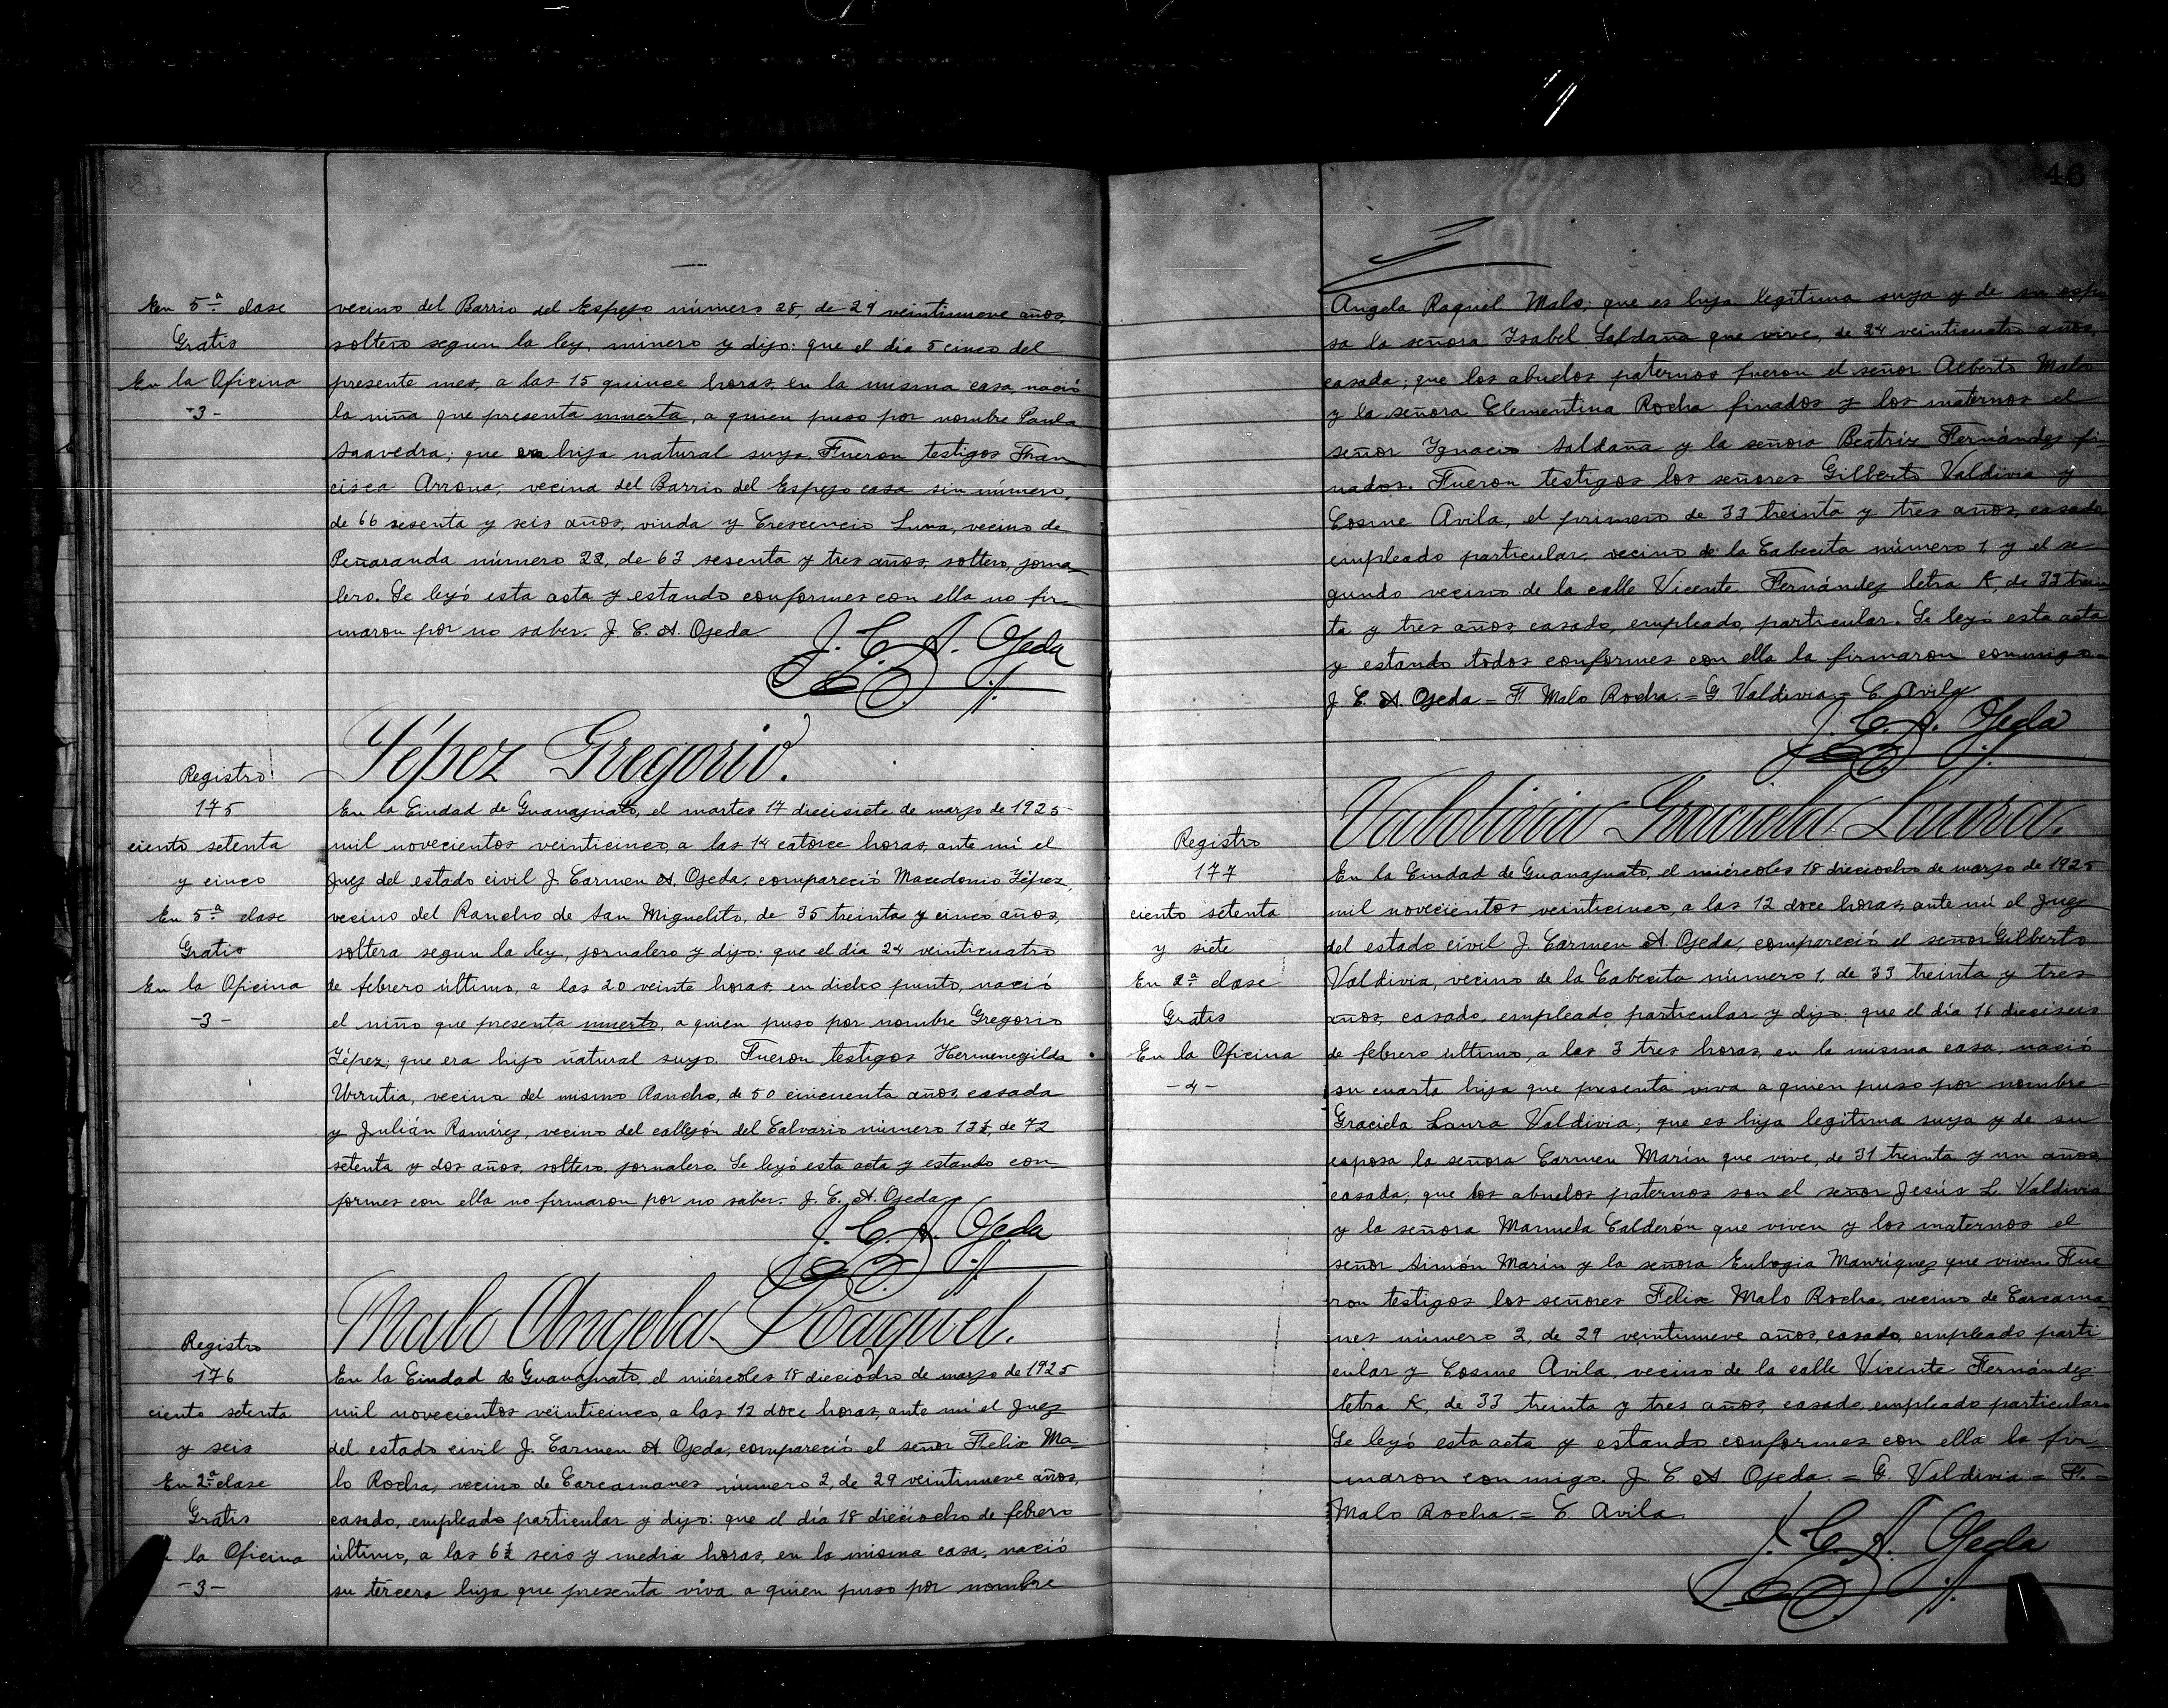 En 5ª clase
Gratis
En la Oficina
-3-
vecino del Barrio del Espejo número 28, de 29 veintinueve años,
soltero segun la ley, minero y dijo: que el día 5 cinco del
presente mes, a las 15 quince horas, en la misma casa, nació
la niña que presenta muerta, a quien puso por nombre Paula
Saavedra; que era hija natural suya. Fueron testigos Fran
cisca Arrona, vecina del Barrio del Espejo casa sin número,
de 66 sesenta y seis años, viuda y Crescencio Luna, vecino de
Peñaranda número 22, de 63 sesenta y tres años, soltero, jorna
lero. Se leyó esta acta y estando conformes con ella no fir
maron por no saber. J. C. A. Ojeda
J. C. A. Ojeda
Yépez Gregorio.
Registro
175
ciento setenta
y cinco
En 5ª clase
Gratis
En la Oficina
-3-
En la Ciudad de Guanajuato, el martes 17 diecisiete de marzo de 1925
mil novecientos veinticinco, a las 14 catorce horas, ante mí el
Juez del estado civil J. Carmen A. Ojeda, compareció Macedonio Yépez,
vecino del Rancho de San Miguelito, de 35 treinta y cinco años,
soltero segun la ley, jornalero y dijo: que el día 24 veinticuatro
de febrero último, a las 20 veinte horas, en dicho punto, nació
el niño que presenta muerto, a quien puso por nombre Gregorio
Yépez; que era hijo natural suyo. Fueron testigos Hermenegilda
Urrutia, vecina del mismo Rancho, de 50 cincuenta años, casada
y Julián Ramírez, vecino del callejón del Calvario número 13½, de 72
setenta y dos años, soltero, jornalero. Se leyó esta acta y estando con
formes con ella no firmaron por no saber. J. C. A. Ojeda
J. C. A. Ojeda
Malo Angela Raquel.
Registro
176
ciento setenta
y seis
En 2ª clase
Gratis
la Oficina
-3-
En la Ciudad de Guanajuato, el miércoles 18 dieciocho de marzo de 1925
mil novecientos veinticinco, a las 12 doce horas, ante mí el Juez
del estado civil J. Carmen A. Ojeda, compareció el señor Felix Ma
lo Rocha, vecino de Carcamanes número 2, de 29 veintinueve años,
casado, empleado particular y dijo: que el día 18 dieciocho de febrero
último, a las 6½ seis y media horas, en la misma casa, nació
su tercera hija que presenta viva a quien puso por nombre
46
Angela Raquel Malo; que es hija legítima suya y de su espo
sa la señora Isabel Saldaña que vive, de 24 veinticuatro años,
casada; que los abuelos paternos fueron el señor Alberto Malo
y la señora Clementina Rocha finados y los maternos el
señor Ignacio Saldaña y la señora Beatriz Fernández fi
nados. Fueron testigos los señores Gilberto Valdivia y
Cosme Avila, el primero de 33 treinta y tres años, casado,
empleado particular, vecino de la Cabecita número 1 y el se
gundo vecino de la calle Vicente Fernández letra K, de 33 trein
ta y tres años, casado, empleado, particular. Se leyó esta acta
y estando todos conformes con ella la firmaron conmigo.
J. C. A. Ojeda = F. Malo Rocha. = G. Valdivia = C. Avila
J. C. A. Ojeda
Valdivia Graciela Laura.
Registro
177
ciento setenta
y siete
En 2ª clase
Gratis
En la Oficina
-4-
En la Ciudad de Guanajuato, el miércoles 18 dieciocho de marzo de 1925
mil novecientos veinticinco, a las 12 doce horas, ante mí el Juez
del estado civil J. Carmen A. Ojeda, compareció el señor Gilberto
Valdivia, vecino de la Cabecita número 1, de 33 treinta y tres
años, casado, empleado particular y dijo: que el día 16 dieciseis
de febrero último, a las 3 tres horas, en la misma casa, nació
su cuarta hija que presenta viva a quien puso por nombre
Graciela Laura Valdivia; que es hija legítima suya y de su
esposa la señora Carmen Marín que vive, de 31 treinta y un años,
casada; que los abuelos paternos son el señor Jesús L. Valdivia
y la señora Manuela Calderón que viven y los maternos el
señor Simón Marín y la señora Eulogia Manríquez que viven. Fue
ron testigos los señores Felix Malo Rocha, vecino de Carcama
nes número 2, de 29 veintinueve años, casado, empleado parti
cular y Cosme Avila, vecino de la calle Vicente Fernández
letra K, de 33 treinta y tres años, casado, empleado particular.
Se leyó esta acta y estando conformes con ella la fir
maron conmigo. J. C. A. Ojeda. = G. Valdivia = F. =
Malo Rocha. = C. Avila.
J. C. A. Ojeda